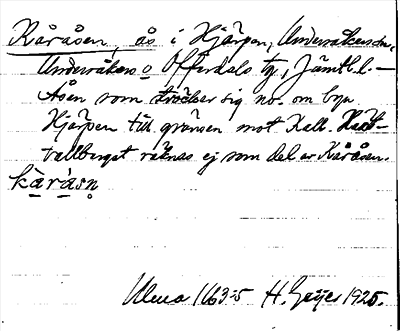 Kåråsen, ås i Hjärpen, Undersåkers sn,
Undersåkers o Offerdals tg, Jämtl. l. –
Åsen som sträcker sig no. om byn
Hjärpen till gränsen mot Kall.
tallberget räknas ej som del av Kåråsen.
kàràsn̥
Ulma 1163:5 H. Geijer 1925.